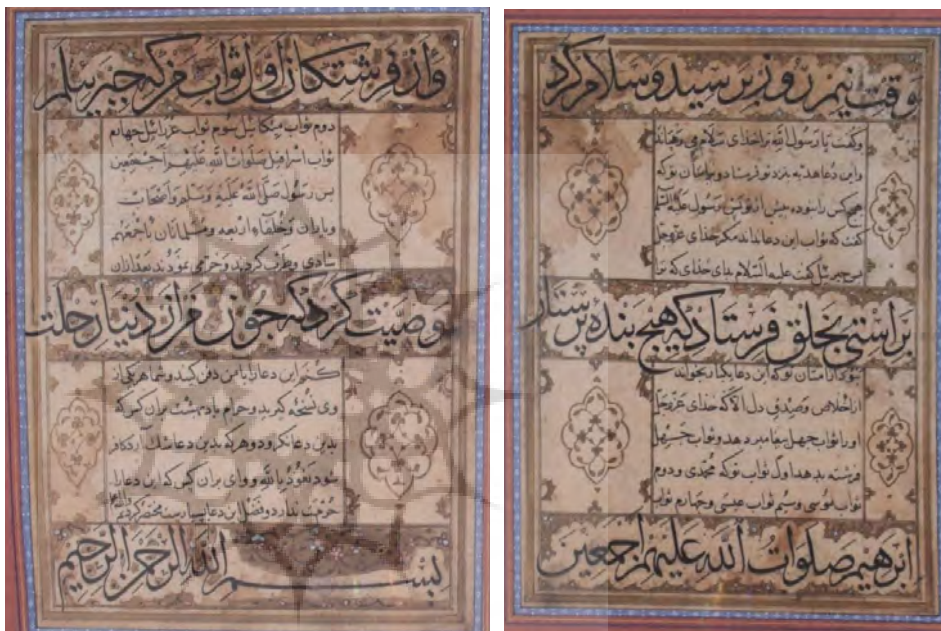 وقت نیم روز برسید و سلام کرد
و کفت یا رسول الله ترا خدای سلام می رساند
و این دعا هدیه بنزد تو فرستاد و براُمتان تو که
هیچ کس را نبوده بیش از تو بس رسول علیه السلم
کفت که ثواب این دعا بداند مکر خدای عز و جل
بس جبرئیل کفت علیه السّلام بدان خدای که ترا
براستی بخلق فرستاد که هیچ بنده پرستار
نبود از امتان تو که این دعا یکبار بخواند
از اخلاص و صدق دل الا که خدای عز و جل
او را ثواب چهل بیغامبر دهد و ثواب چهل
فرشته بدهد اول ثواب تو که محمدی و دوم
ثواب موسی و سیم ثواب عیسی و چهارم ثواب
ابرهیم صلوات الله علیهم اجمعین
و از فرشتکان اول ثواب من که جبرئیلم
دوم ثواب میکائیل سوم ثواب عزرائیل چهارم
ثواب اسرافیل صلوات الله علیهم اجمعین
بس رسول صلی الله علیه و سلم و اصحاب
و یاران و خلفاء اربعه و مسلمانان باجمعهم
شادی و طرب کردند و خرمی نمودند بعد از ان
وصیت کرد که جون من از دنیا رحلت
کنم این دعا را با من دفن کنید و شما هر یکی از
وی نسخه کیرید و حرام باد بهشت بران کس که
بدین دعا نکرود و هر که بدین دعا شک ارد کافر
شود نعوذ بالله و وای بران کس که این دعا را
حرمت ندارد و فضل این دعا بسیارست مختصر کردیم
بسم الله الرحمن الرحیم